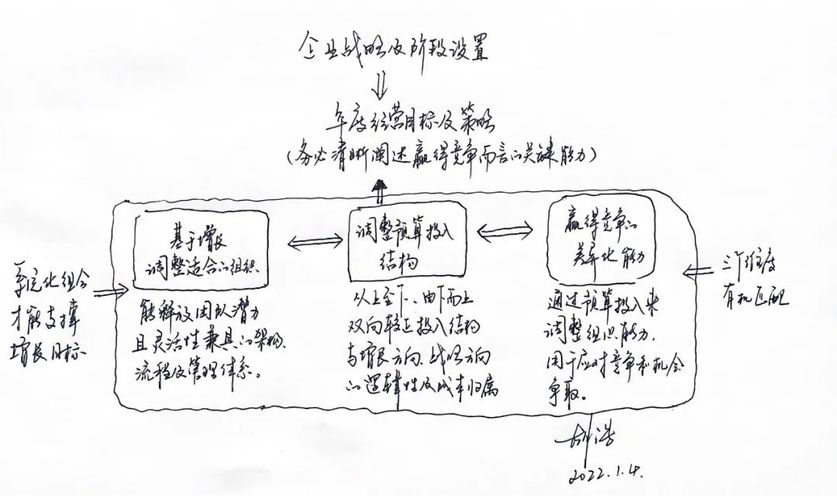 企业战略及阶段设置
年度经营目标及策略
(务必清晰阐述赢得竞争而言的关键能力)
系统化组合
才能支撑
增长目标
基于增长
调整适合的组织
能解放团队潜力
且灵活性兼具的架构、
流程及管理体系。
调整预算投入
结构
从上至下、由下而上
双向较正投入结构
与增长方向、战略方向
的逻辑性及成本归属
赢得竞争的
差异化能力
通过预算投入来
调整组织能力,
用于应对竞争和机会
争取。
三个维度
有机匹配
2022.1.4.